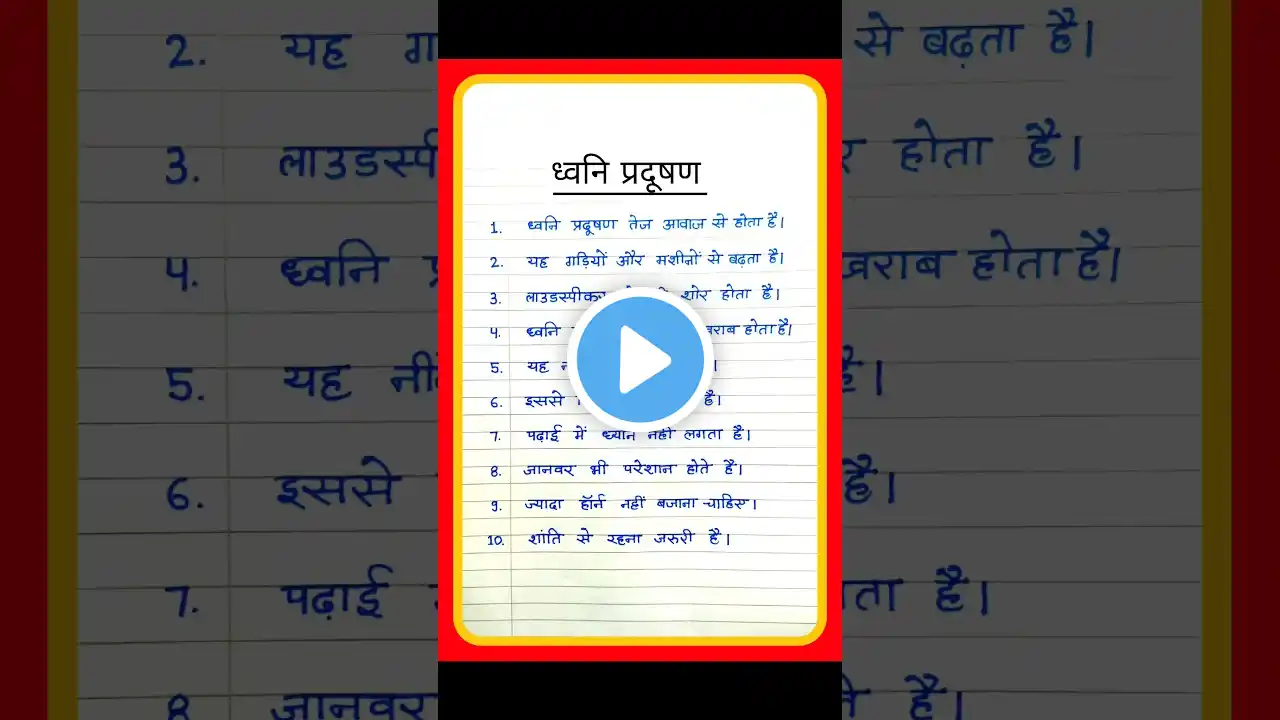 ध्वनि प्रदूषण
1. ध्वनि प्रदूषण तेज आवाज से होता है।
2. यह गड़ियों और मशीनों से बढ़ता है।
3. लाउडस्पीकर शोर होता है।
4. ध्वनि खराब होता है।
5. यह
6. इससे है।
7. पढ़ाई में ध्यान नहीं लगता है।
8. जानवर भी परेशान होते है।
9. ज्यादा हॉर्न नहीं बजाना चाहिए।
10. शांति से रहना जरुरी है।